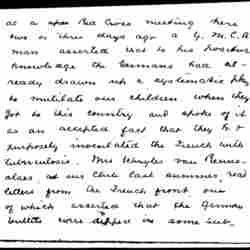 at a Red Cross meeting here
two or three days ago a Y.M.C.A.
man asserted that to his
knowledge the Germans had al-
ready drawn up a systematic plan
to mutilate our children when they
got to this country and spoke of it
as an accepted fact that they
purposely inoculated the French with
tuberculosis. Mrs Schuyler van Rensse-
alaer, at our club last summer, read
letters from the French front, one
of which asserted that the German
bullets were dipped in some sub-